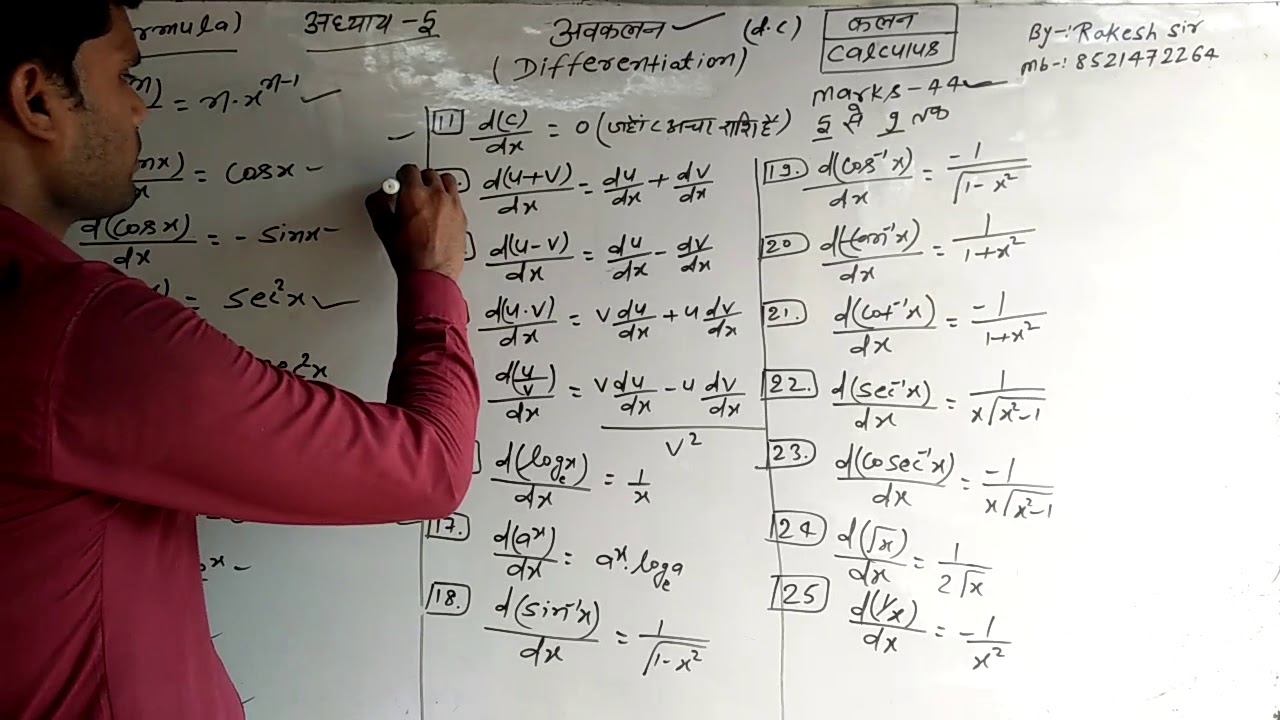 rmula)
अध्याय -5
अवकलन (d.c)
(Differentiation)
कलन
Calculus
By-: Rakesh sir
mb-: 8521472264
Marks-44
5 से 9 तक
= n·xⁿ⁻¹
= cosx
d(cosx)/dx = - sinx
= sec²x
11 d(c)/dx = 0 (जहाँ c अचर राशि है)
d(u+v)/dx = du/dx + dv/dx
d(u-v)/dx = du/dx - dv/dx
d(u·v)/dx = v du/dx + u dv/dx
d(u/v)/dx = (v du/dx - u dv/dx)/v²
d(logₑx)/dx = 1/x
17. d(aˣ)/dx = aˣ·logₑa
18. d(sin⁻¹x)/dx = 1/√(1-x²)
19. d(cos⁻¹x)/dx = -1/√(1-x²)
20 d(tan⁻¹x)/dx = 1/(1+x²)
21. d(cot⁻¹x)/dx = -1/(1+x²)
22. d(sec⁻¹x)/dx = 1/(x√(x²-1))
23. d(cosec⁻¹x)/dx = -1/(x√(x²-1))
24 d(√x)/dx = 1/(2√x)
25 d(1/x)/dx = -1/x²